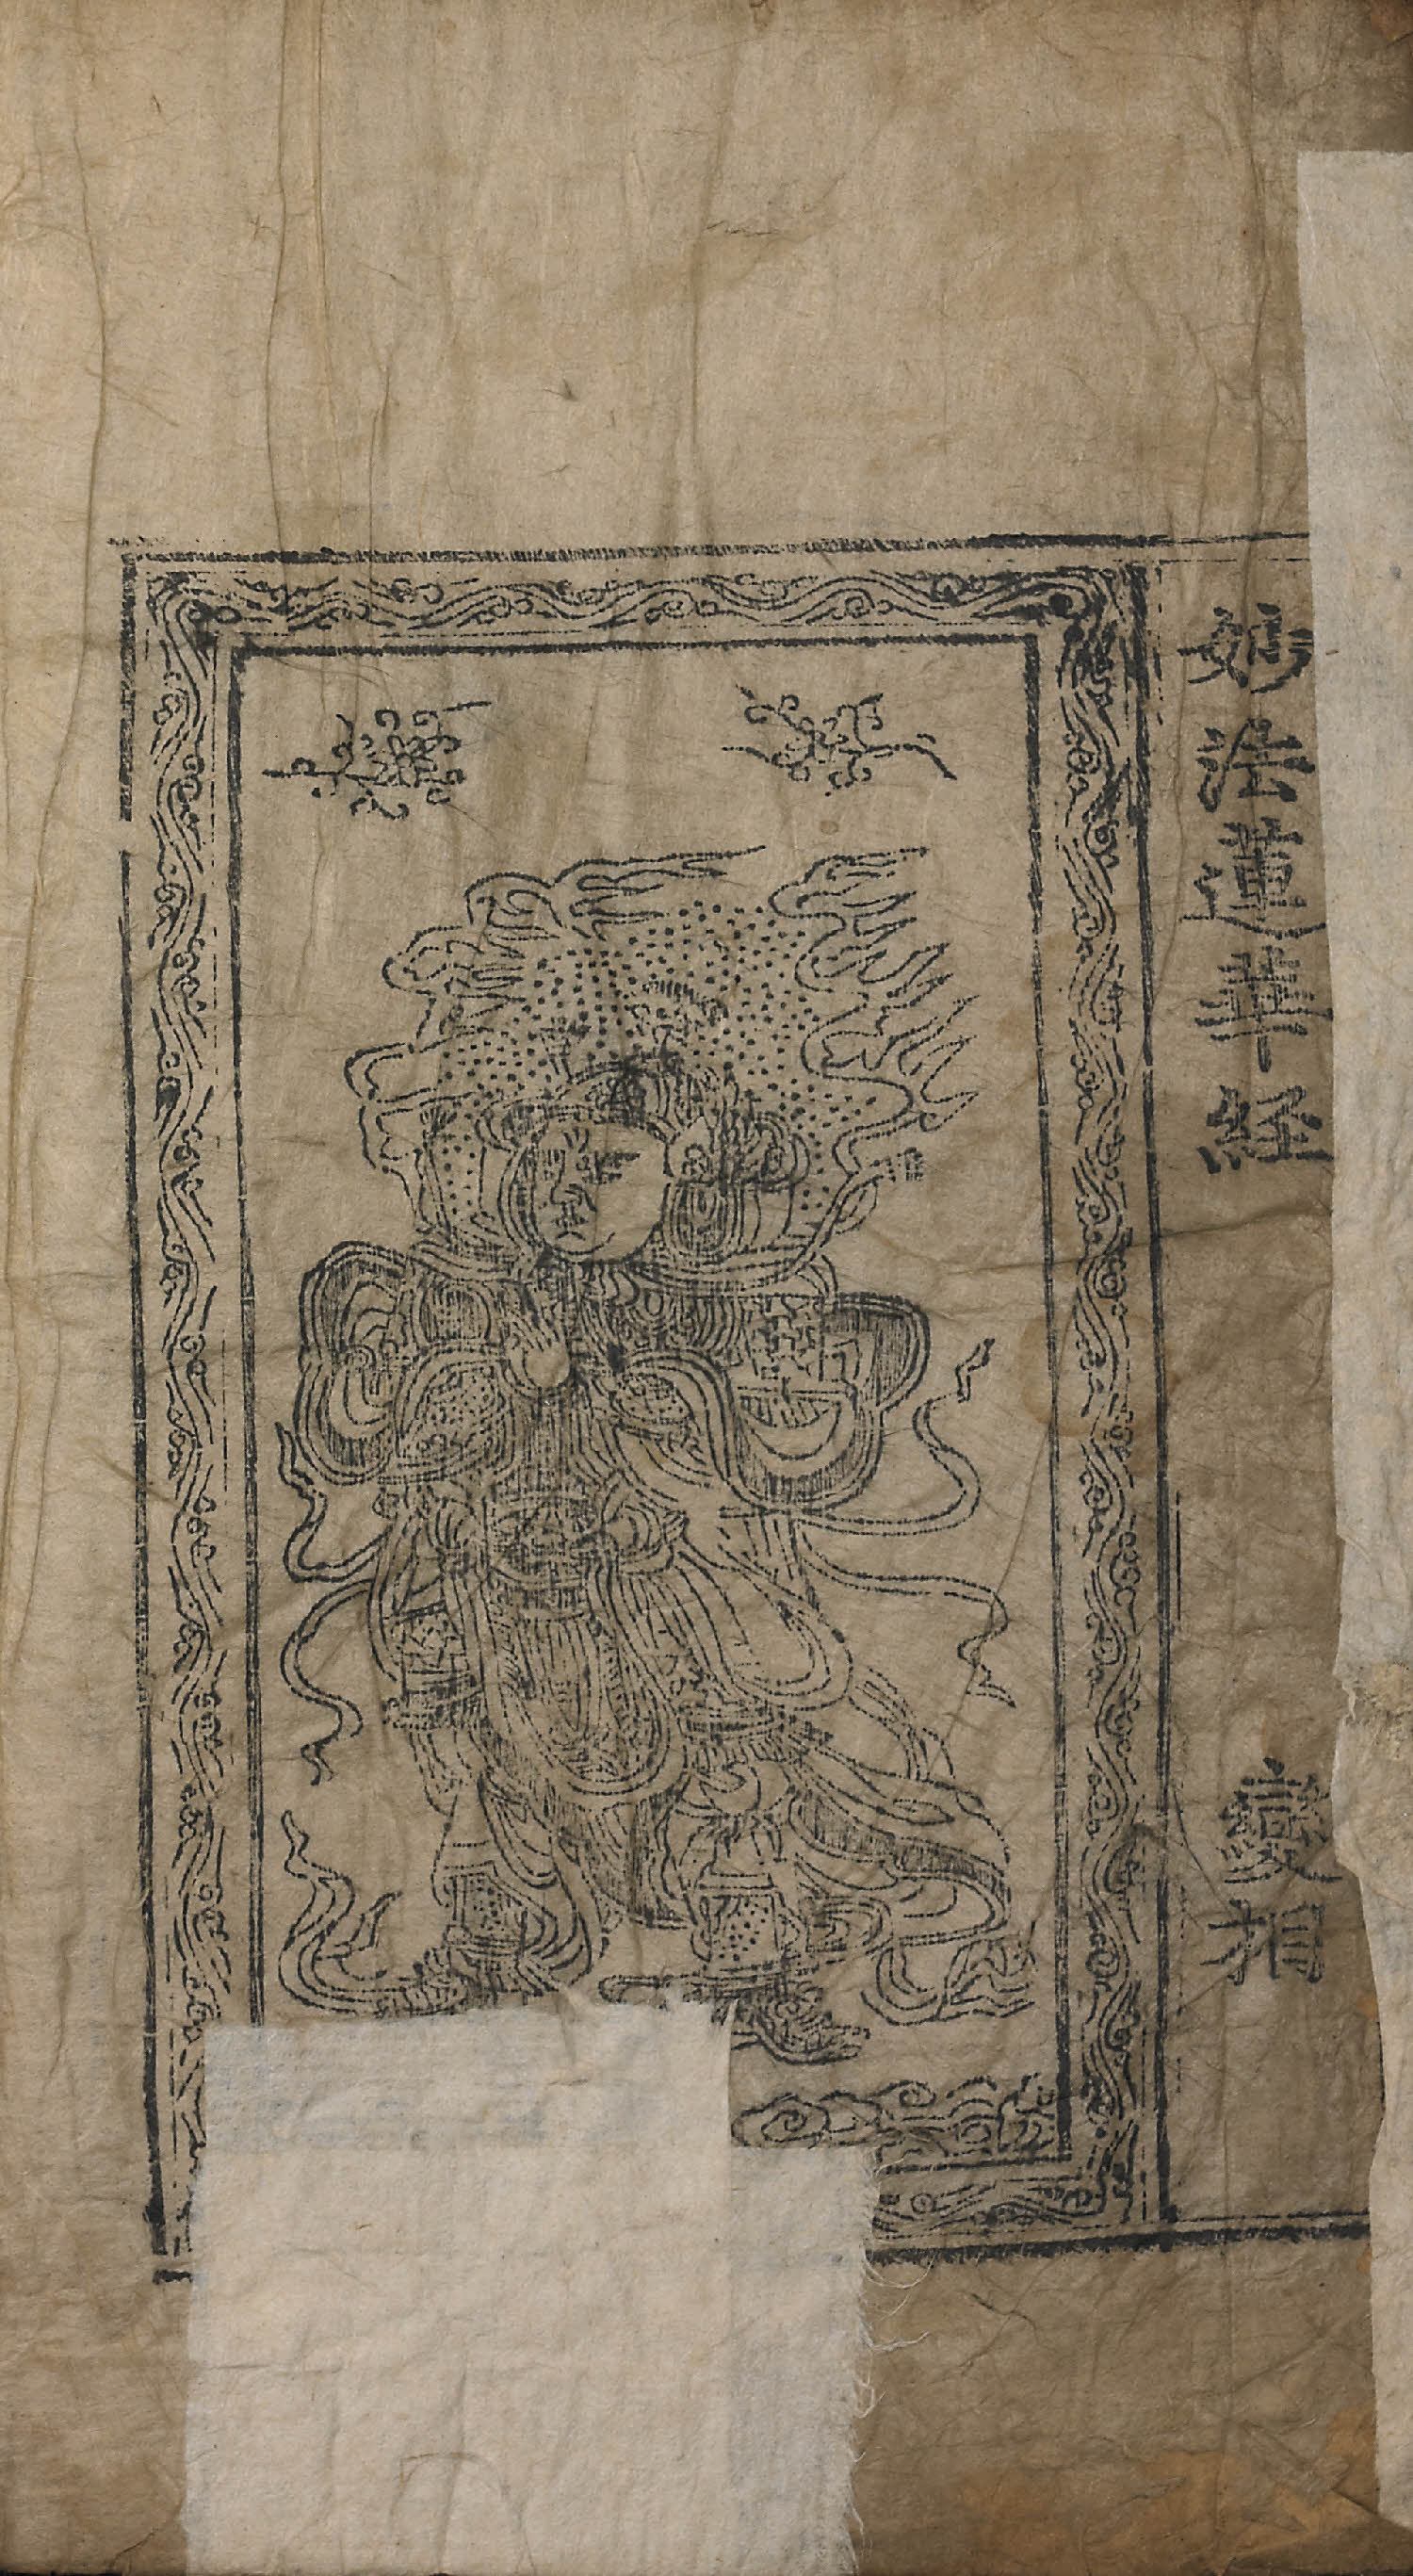 妙法蓮華經 變相